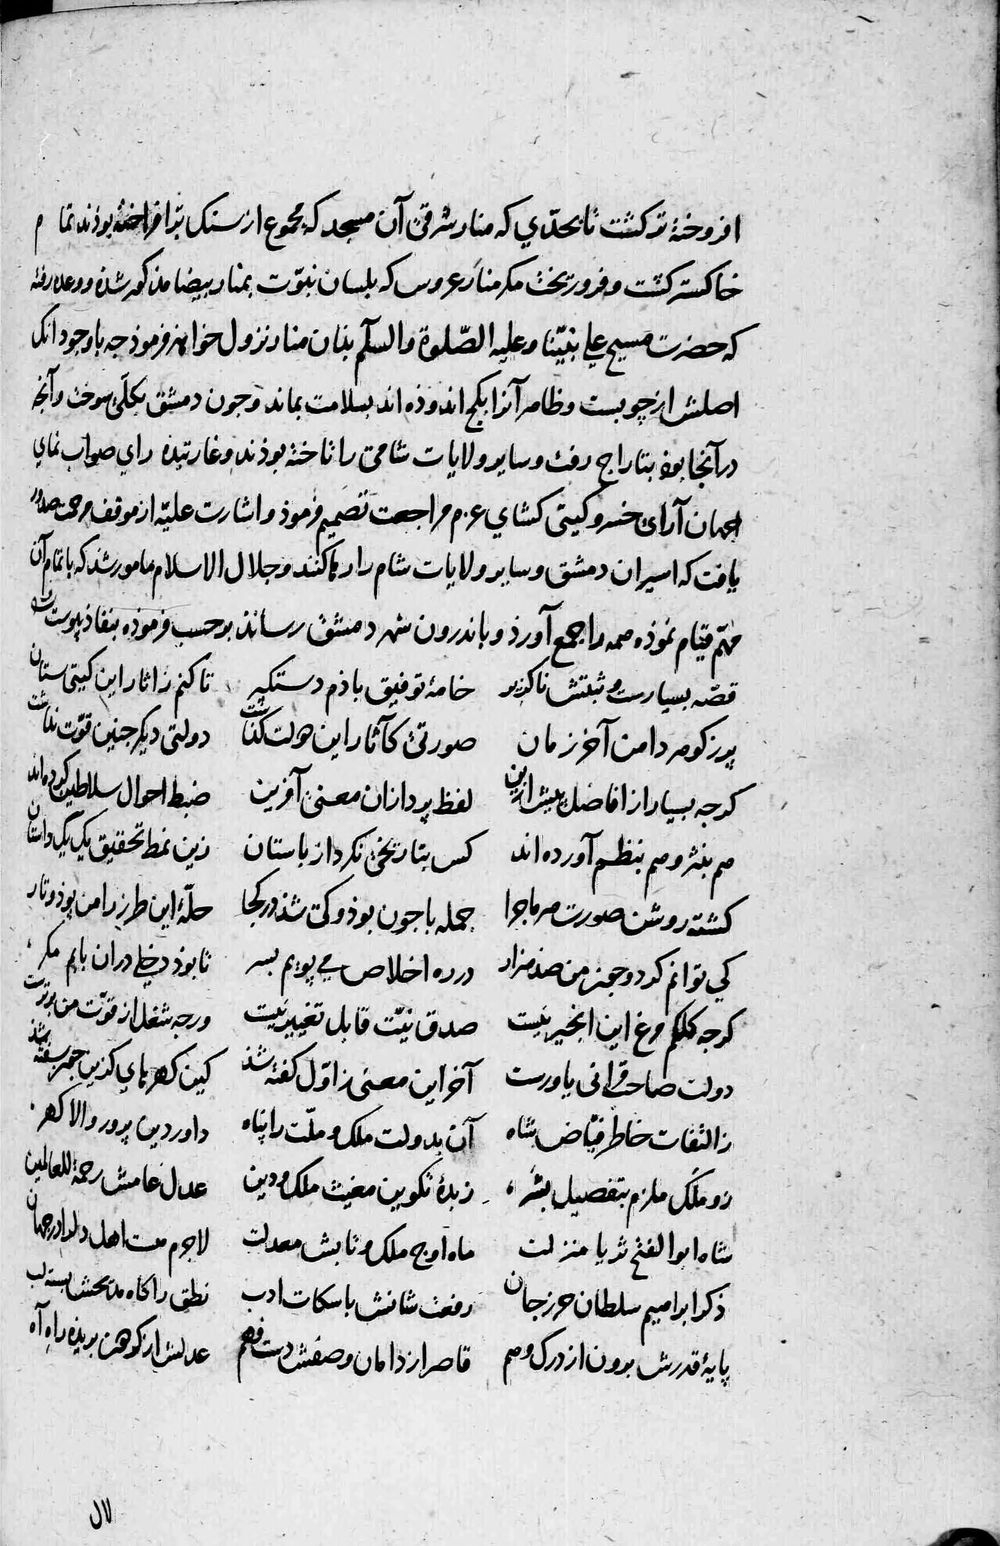 افروخته تر کشت تا بحدّی که منار شرقی آن مسجد که مجموع از سنک برافراخته بوذند تمام
خاکستر کشت و فرو ریخت مکر مناره عروس که بلسان نبوّت بمنار بیضا مذکور شذه و وعده رفته
که حضرت مسیح علی نبیّنا و علیه الصّلوة و السلم بذان منار نزول خواهد فرموذ جه با وجود انک
اصلش از چوبست و ظاهر آنرا بکج اندوذه اند بسلامت بماند و جون دمشق بکلّی سوخت و آنج
در آنجا بوذ بتاراج رفت و سایر ولایات شام را تاخته بوذند و غارتیده رای صواب نمای
جهان آرای خسرو کیتی کشای عزم مراجعت تصمیم فرموذ و اشارت علیّه از موقف مرحمت صدور
یافت که اسیران دمشق و سایر ولایات شام را رها کنند و جلال الاسلام مامور شذ که باتمام آن
مهمّ قیام نموذه همه را جمع آورذ و باندرون شهر دمشق رسانذ بر حسب فرموذه بنفاذ پیوست
قصّه بسیارست و ثبتش ناکزیر خامۀ توفیق باذم دستکیر تا کنم ز اثار این کیتی ستان
پر ز کوهر دامن آخر زمان صورتی کآثار این دولت نکاشت دولتی دیکر جنین قوّت نداشت
کرجه بسیار از افاضل پیش ازین لفظ پردازان معنی آفرین ضبط احوال سلاطین کرده اند
هم بنثر و هم بنظم آورده اند کس بتاریخی نکرد از باستان زین نمط تحقیق یک یک داستان
کشته روشن صورت هر ماجرا جمله با جون بوذ و کی شذ در کجا حلّۀ این طرز را من پوذ و تار
کی توانم کرد و جز من صذ هزار در ره اخلاص می پویم بسر تا بوذ دخلی دران یابم مکر
کرجه کلکم مرغ این انجیر نیست صدق نیّت قابل تغییر نیست ورجه شغل از قوّت من برترست
دولت صاحب قرانی یاورست آخر این معنی ز اوّل کفته شذ کین کهرهای کذین جمر سفته شذ
ز التفات خاطر فیّاض شاه آن بدولت ملک و ملّت را پناه داور دین پرور والا کهر
زو ملک ملزم بتفصیل بشر زبدۀ تکوین مغیث ملک و دین عدل عامش رحمة للعالمین
شاه ابو الفتح ثریا منزلت ماه اوج ملک و تابش معدلت لاجرم هست اهل دلرا در جهان
ذکر ابراهیم سلطان حرز جان رفعت شانش باسکات ادب نطق را کاه مدیحش بسته لب
پایۀ قدرش برون از درک وهم قاصر از دامان وصفش دست فهم عدلش از کوهت بریذه راه آه